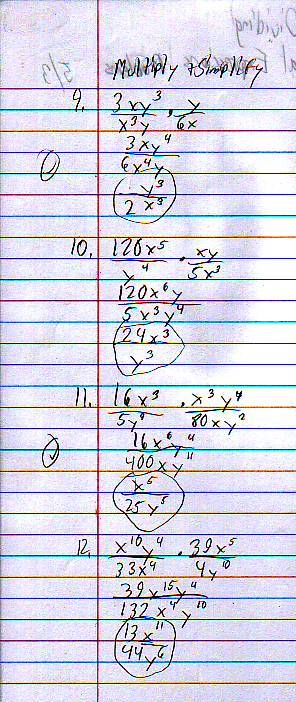 Multiply + Simplify
9. 3xy³/x³y · y/6x
3xy⁴/6x⁴y
y³/2x³
10. 120x⁵/y⁴ · xy/5x³
120x⁶y/5x³y⁴
24x³/y³
11. 16x³/5y⁹ · x³y⁴/80xy²
16x⁶y⁴/400xy¹¹
x⁵/25y⁵
12. x¹⁰y⁴/33x⁴ · 39x⁵/4y¹⁰
39x¹⁵y⁴/132x⁴y¹⁰
13x¹¹/44y⁶